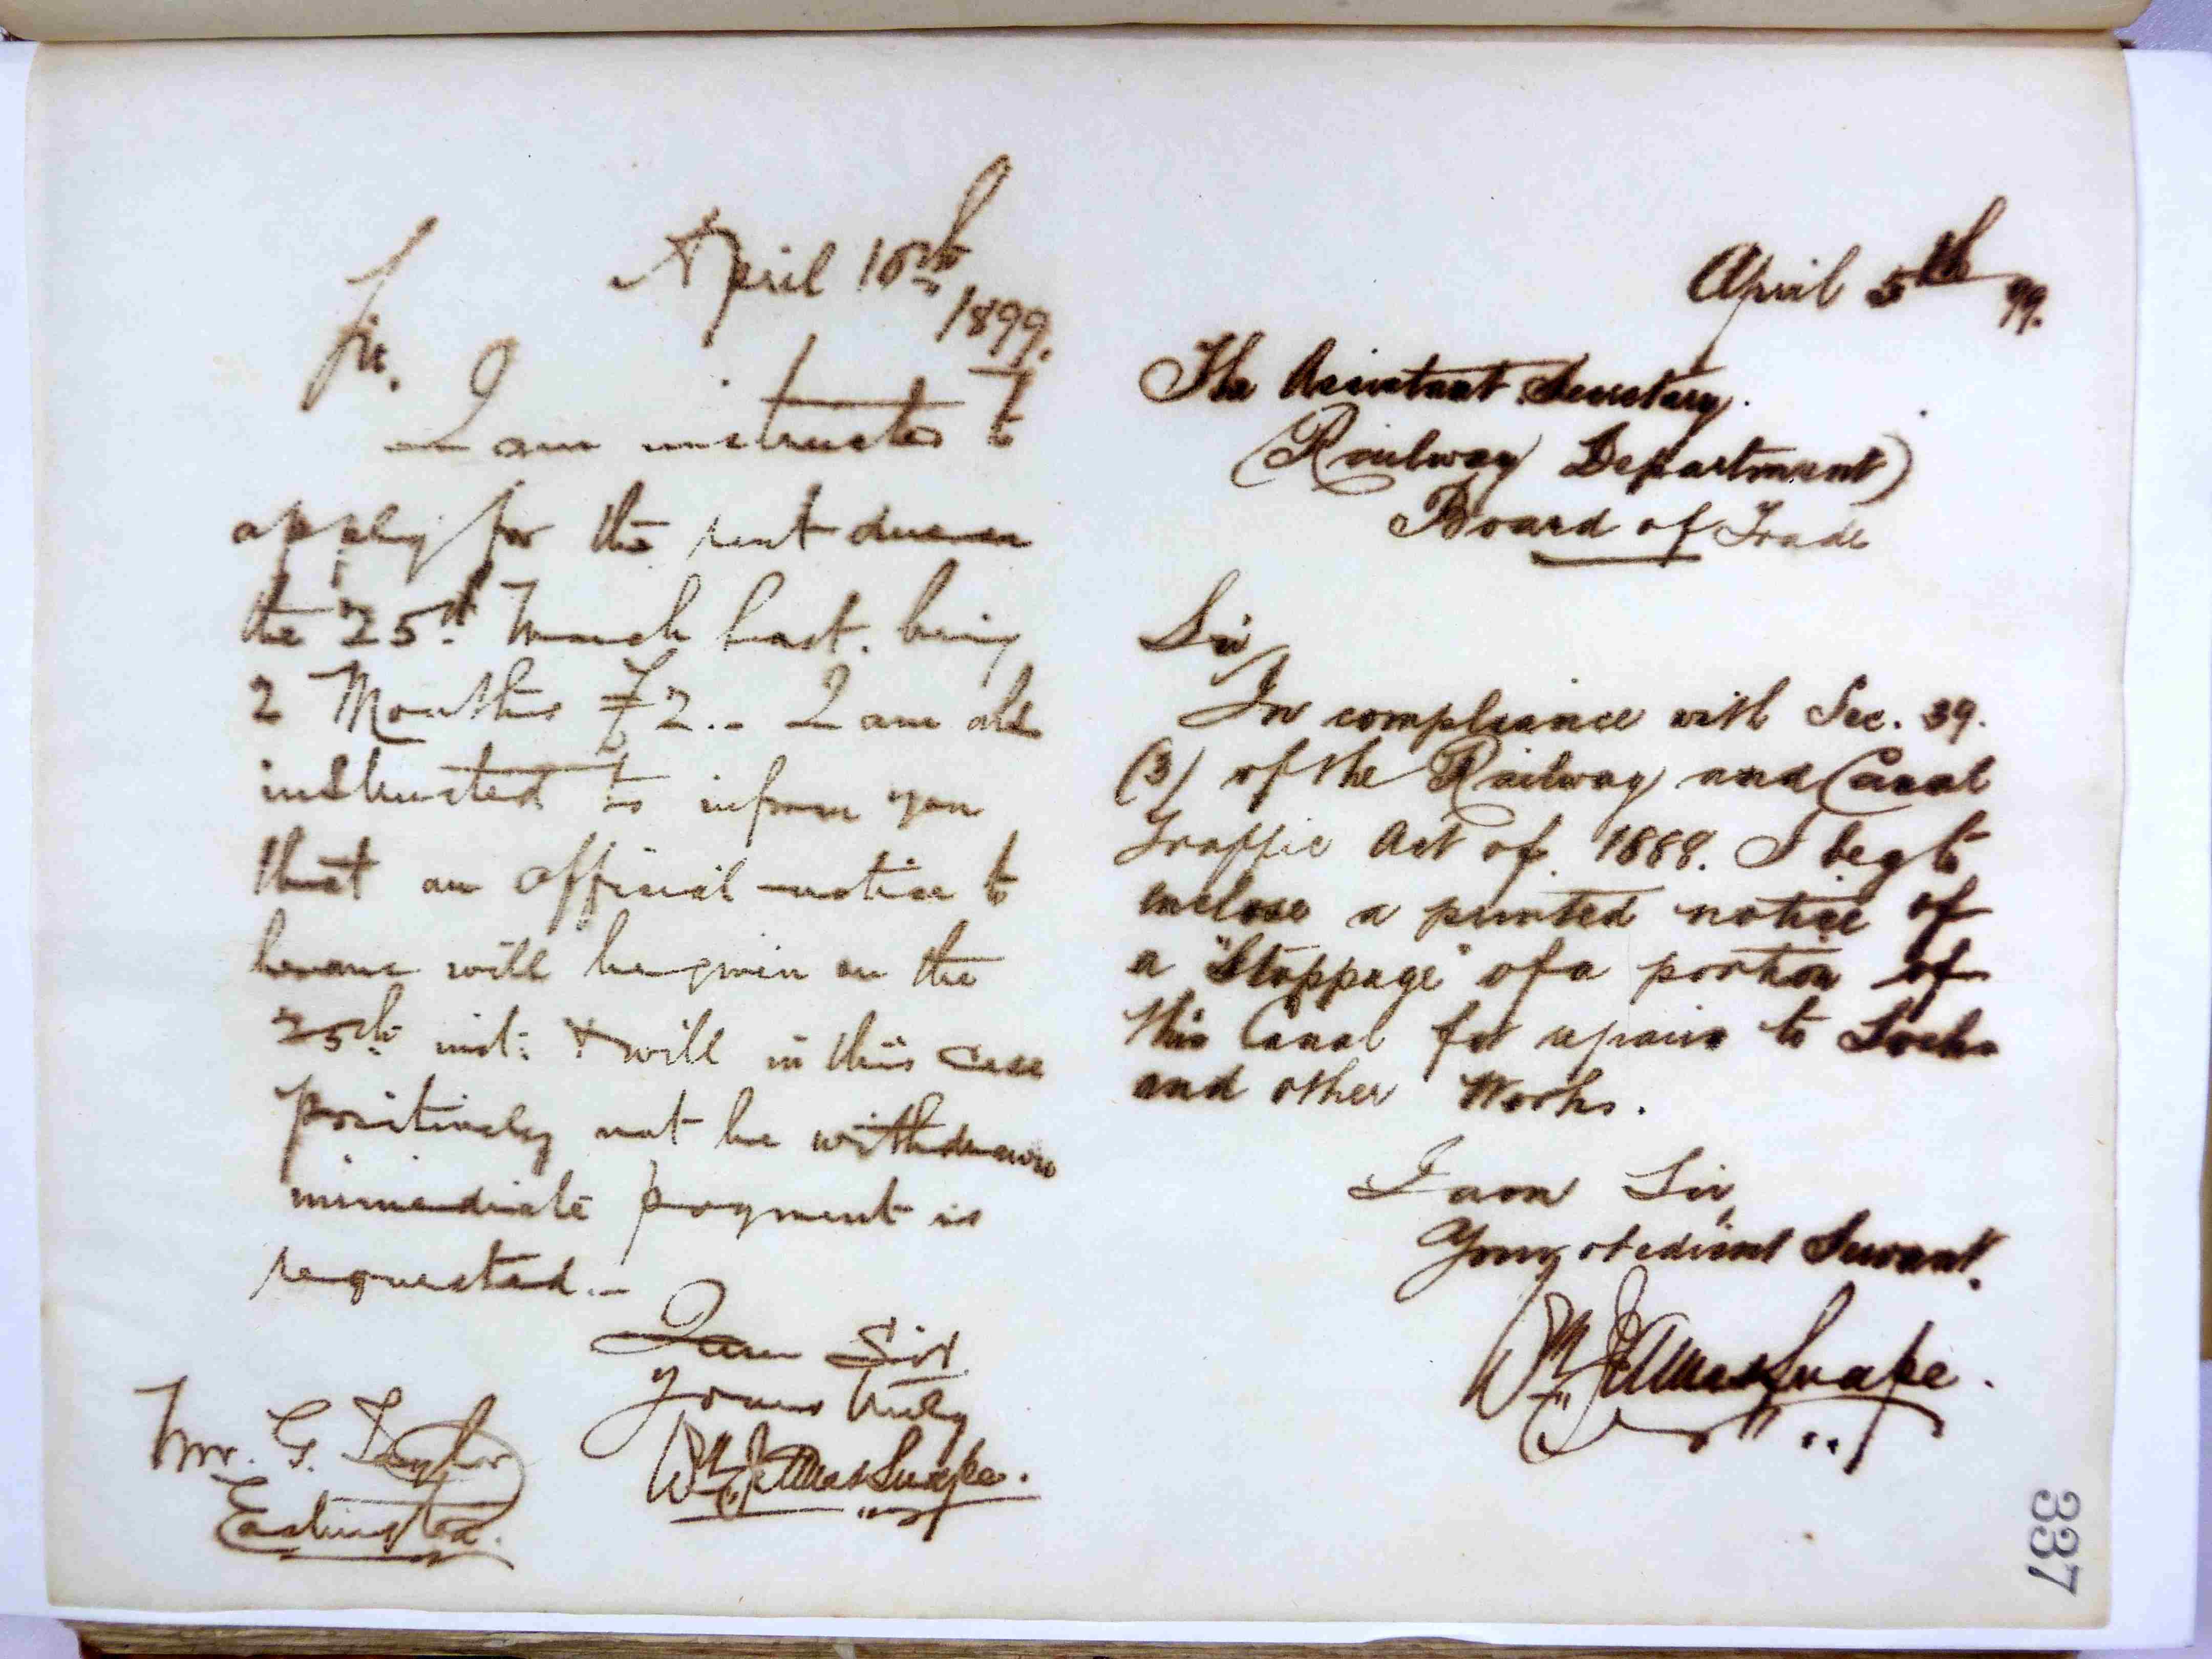 April 10th
1899.
Sir.
I am instructed to
apply for the rent due on
the 25th March last. being
2 Months £2.- I am also
instructed to inform you
that an official notice to
leave will be given on the
25th inst: & will in this case
positively not be withdrawn
immediate payment is
requested.-
I am Sir
Yours truly
Wm. J. Snape.
Mr. G. Taylor
Eastington.
April 5th 99.
The Assistant Secretary.
(Railway Department)
Board of Trade
Sir,
In compliance with Sec. 39.
(3) of the Railway and Canal
Traffic Act of 1888. I beg to
inclose a printed notice of
a "Stoppage" of a portion of
this Canal for repairs to Locks
and other Works.
I am Sir,
Your obedient Servant.
Wm. J. Snape.
337